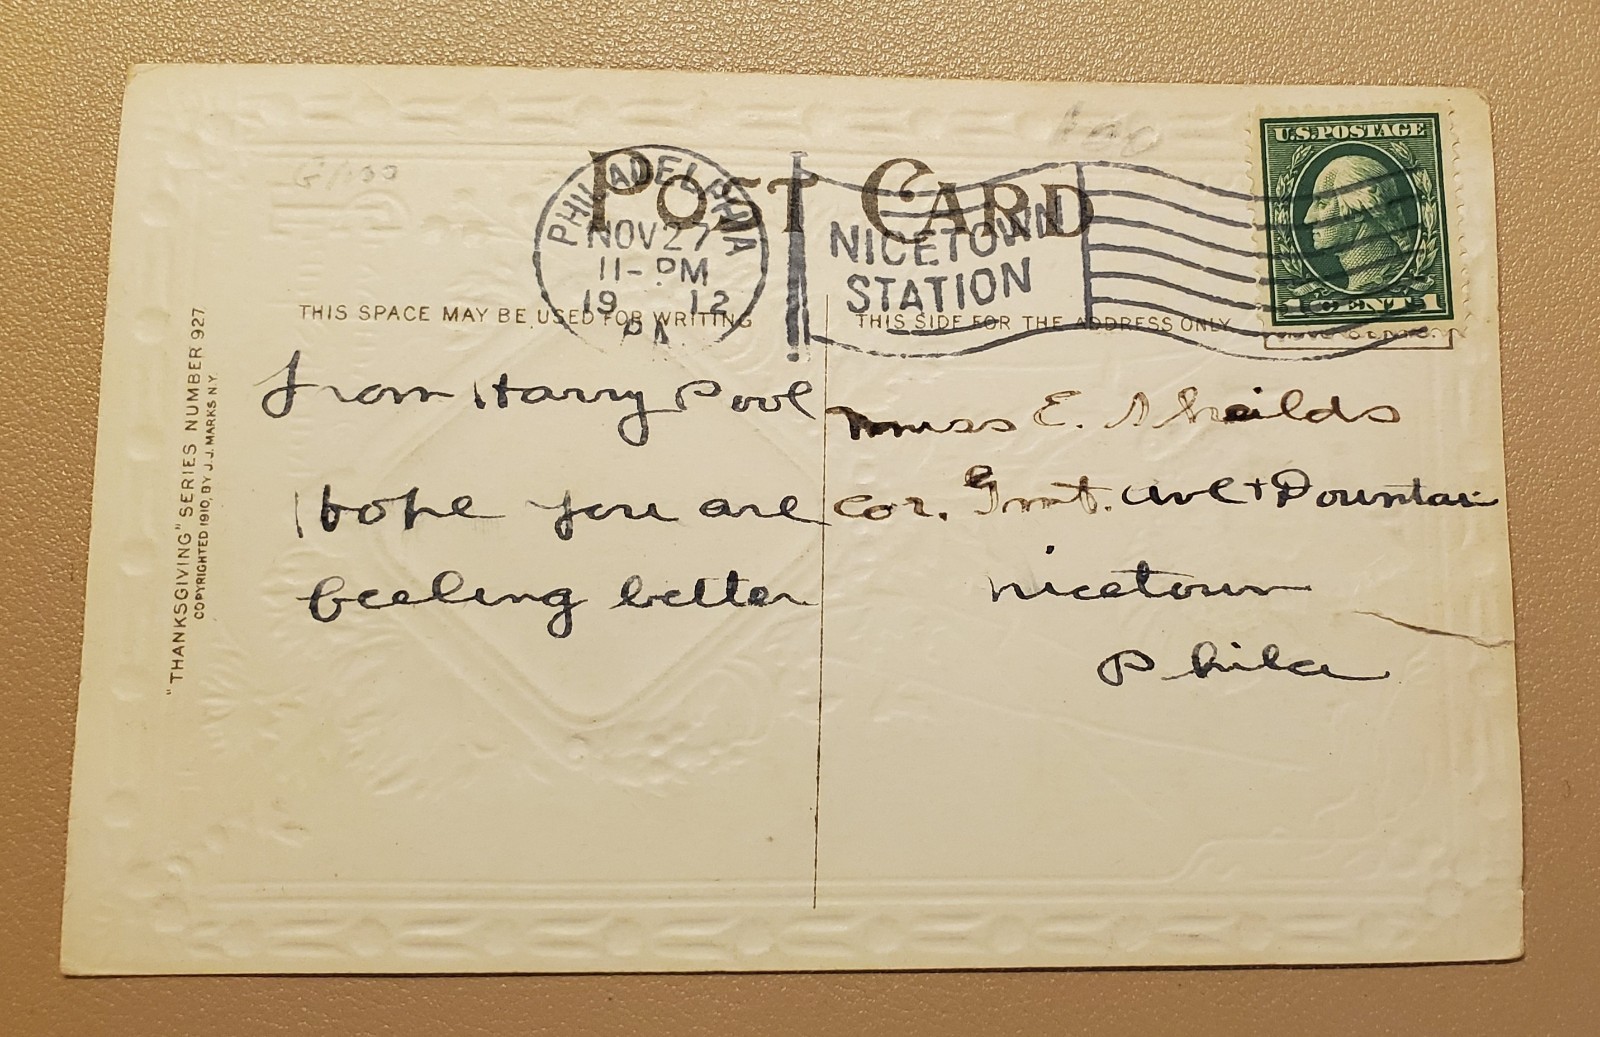 POST CARD
PHILADELPHIA
NOV 27
11-PM
1912
PA
NICETOWN
STATION
U.S. POSTAGE
1 CENT 1
THIS SPACE MAY BE USED FOR WRITING
THIS SIDE FOR THE ADDRESS ONLY
"THANKSGIVING" SERIES NUMBER 927
COPYRIGHTED 1910, BY J.J. MARKS N.Y.
from Harry Pool
Hope you are
feeling better
Miss E. Sheilds
Cor. Gmt. Ave + Dountain
Nicetown
Phila